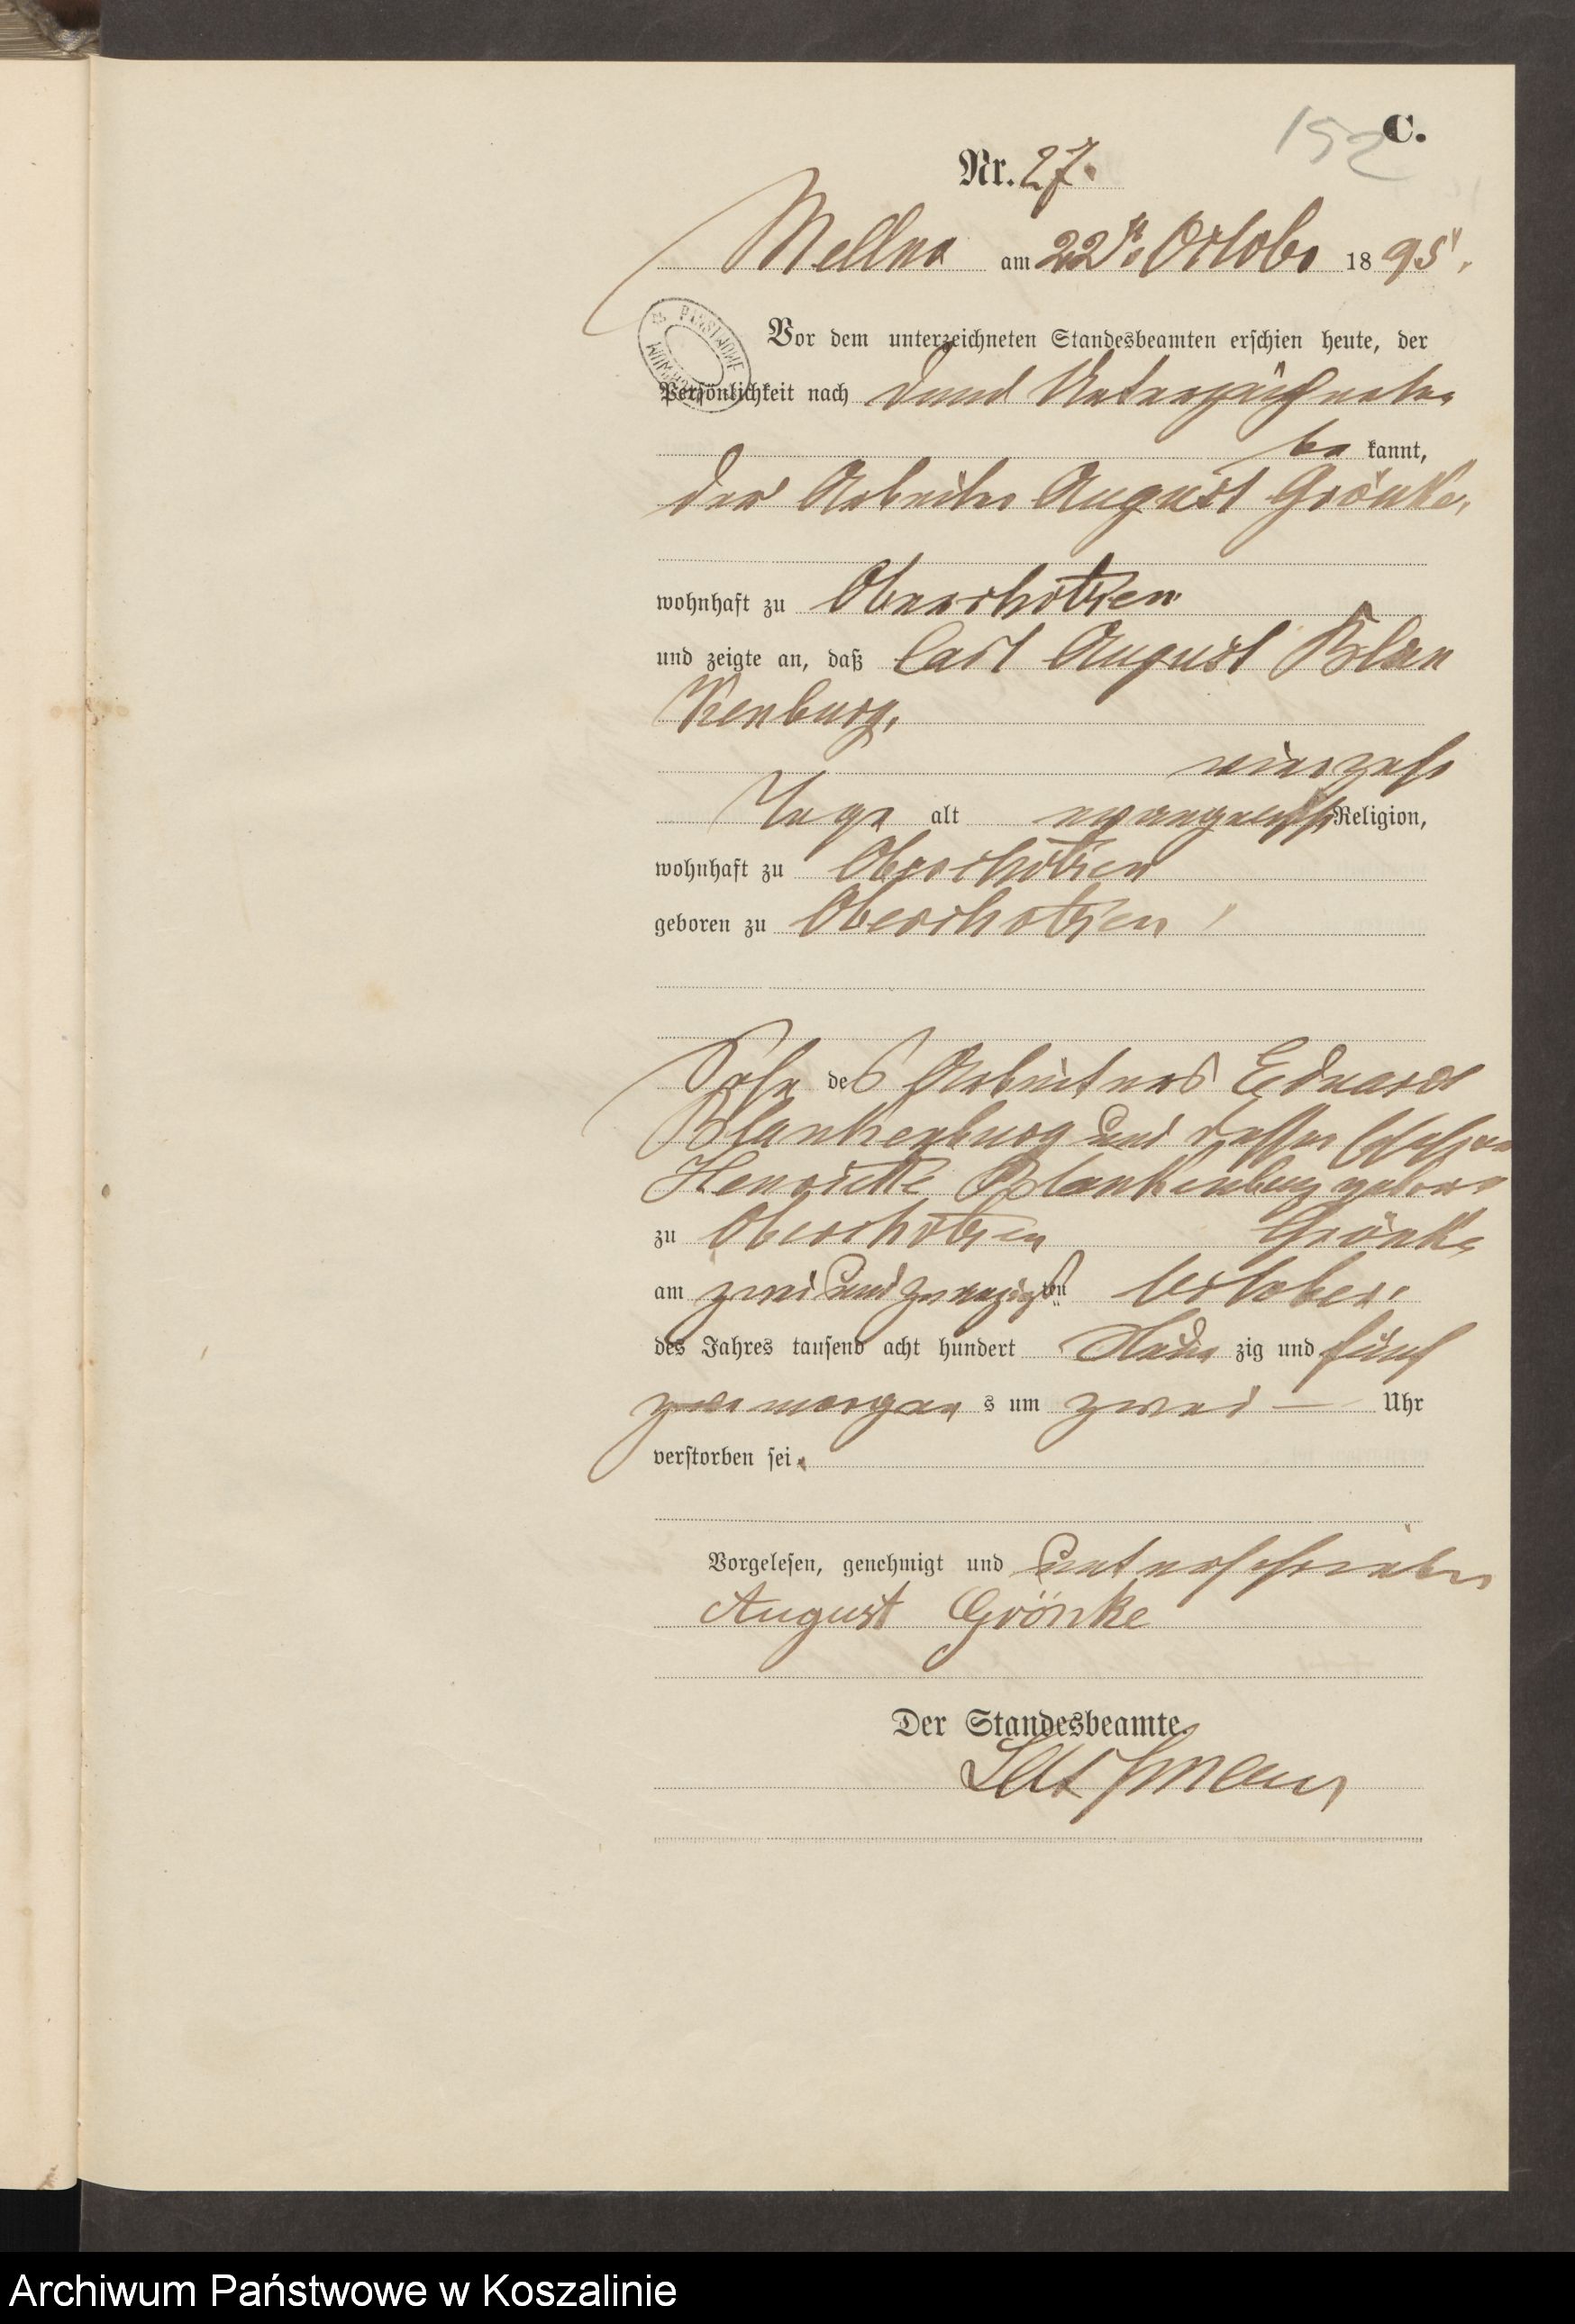 152
C.
Nr. 27.
am 22t. October 1895.
Vor dem unterzeichneten Standesbeamten erschien heute, der
Persönlichkeit nach dem Unterzeichneten
be kannt,
der Arbeiter August Grönke,
wohnhaft zu
und zeigte an, daß Carl August Blan
kenburg,
vierzehn
Tage alt evangelisch Religion,
wohnhaft zu
geboren zu
Sohn des Arbeiters Eduard
Blankenburg und dessen Ehefrau
Henriette Blankenburg geborne
zu Grönke
am zwei und zwanzigsten October
des Jahres tausend acht hundert neun zig und fünf
morgens um zwei — Uhr
verstorben sei.
Vorgelesen, genehmigt und unterschrieben
August Grönke
Der Standesbeamte.
Archiwum Państwowe w Koszalinie